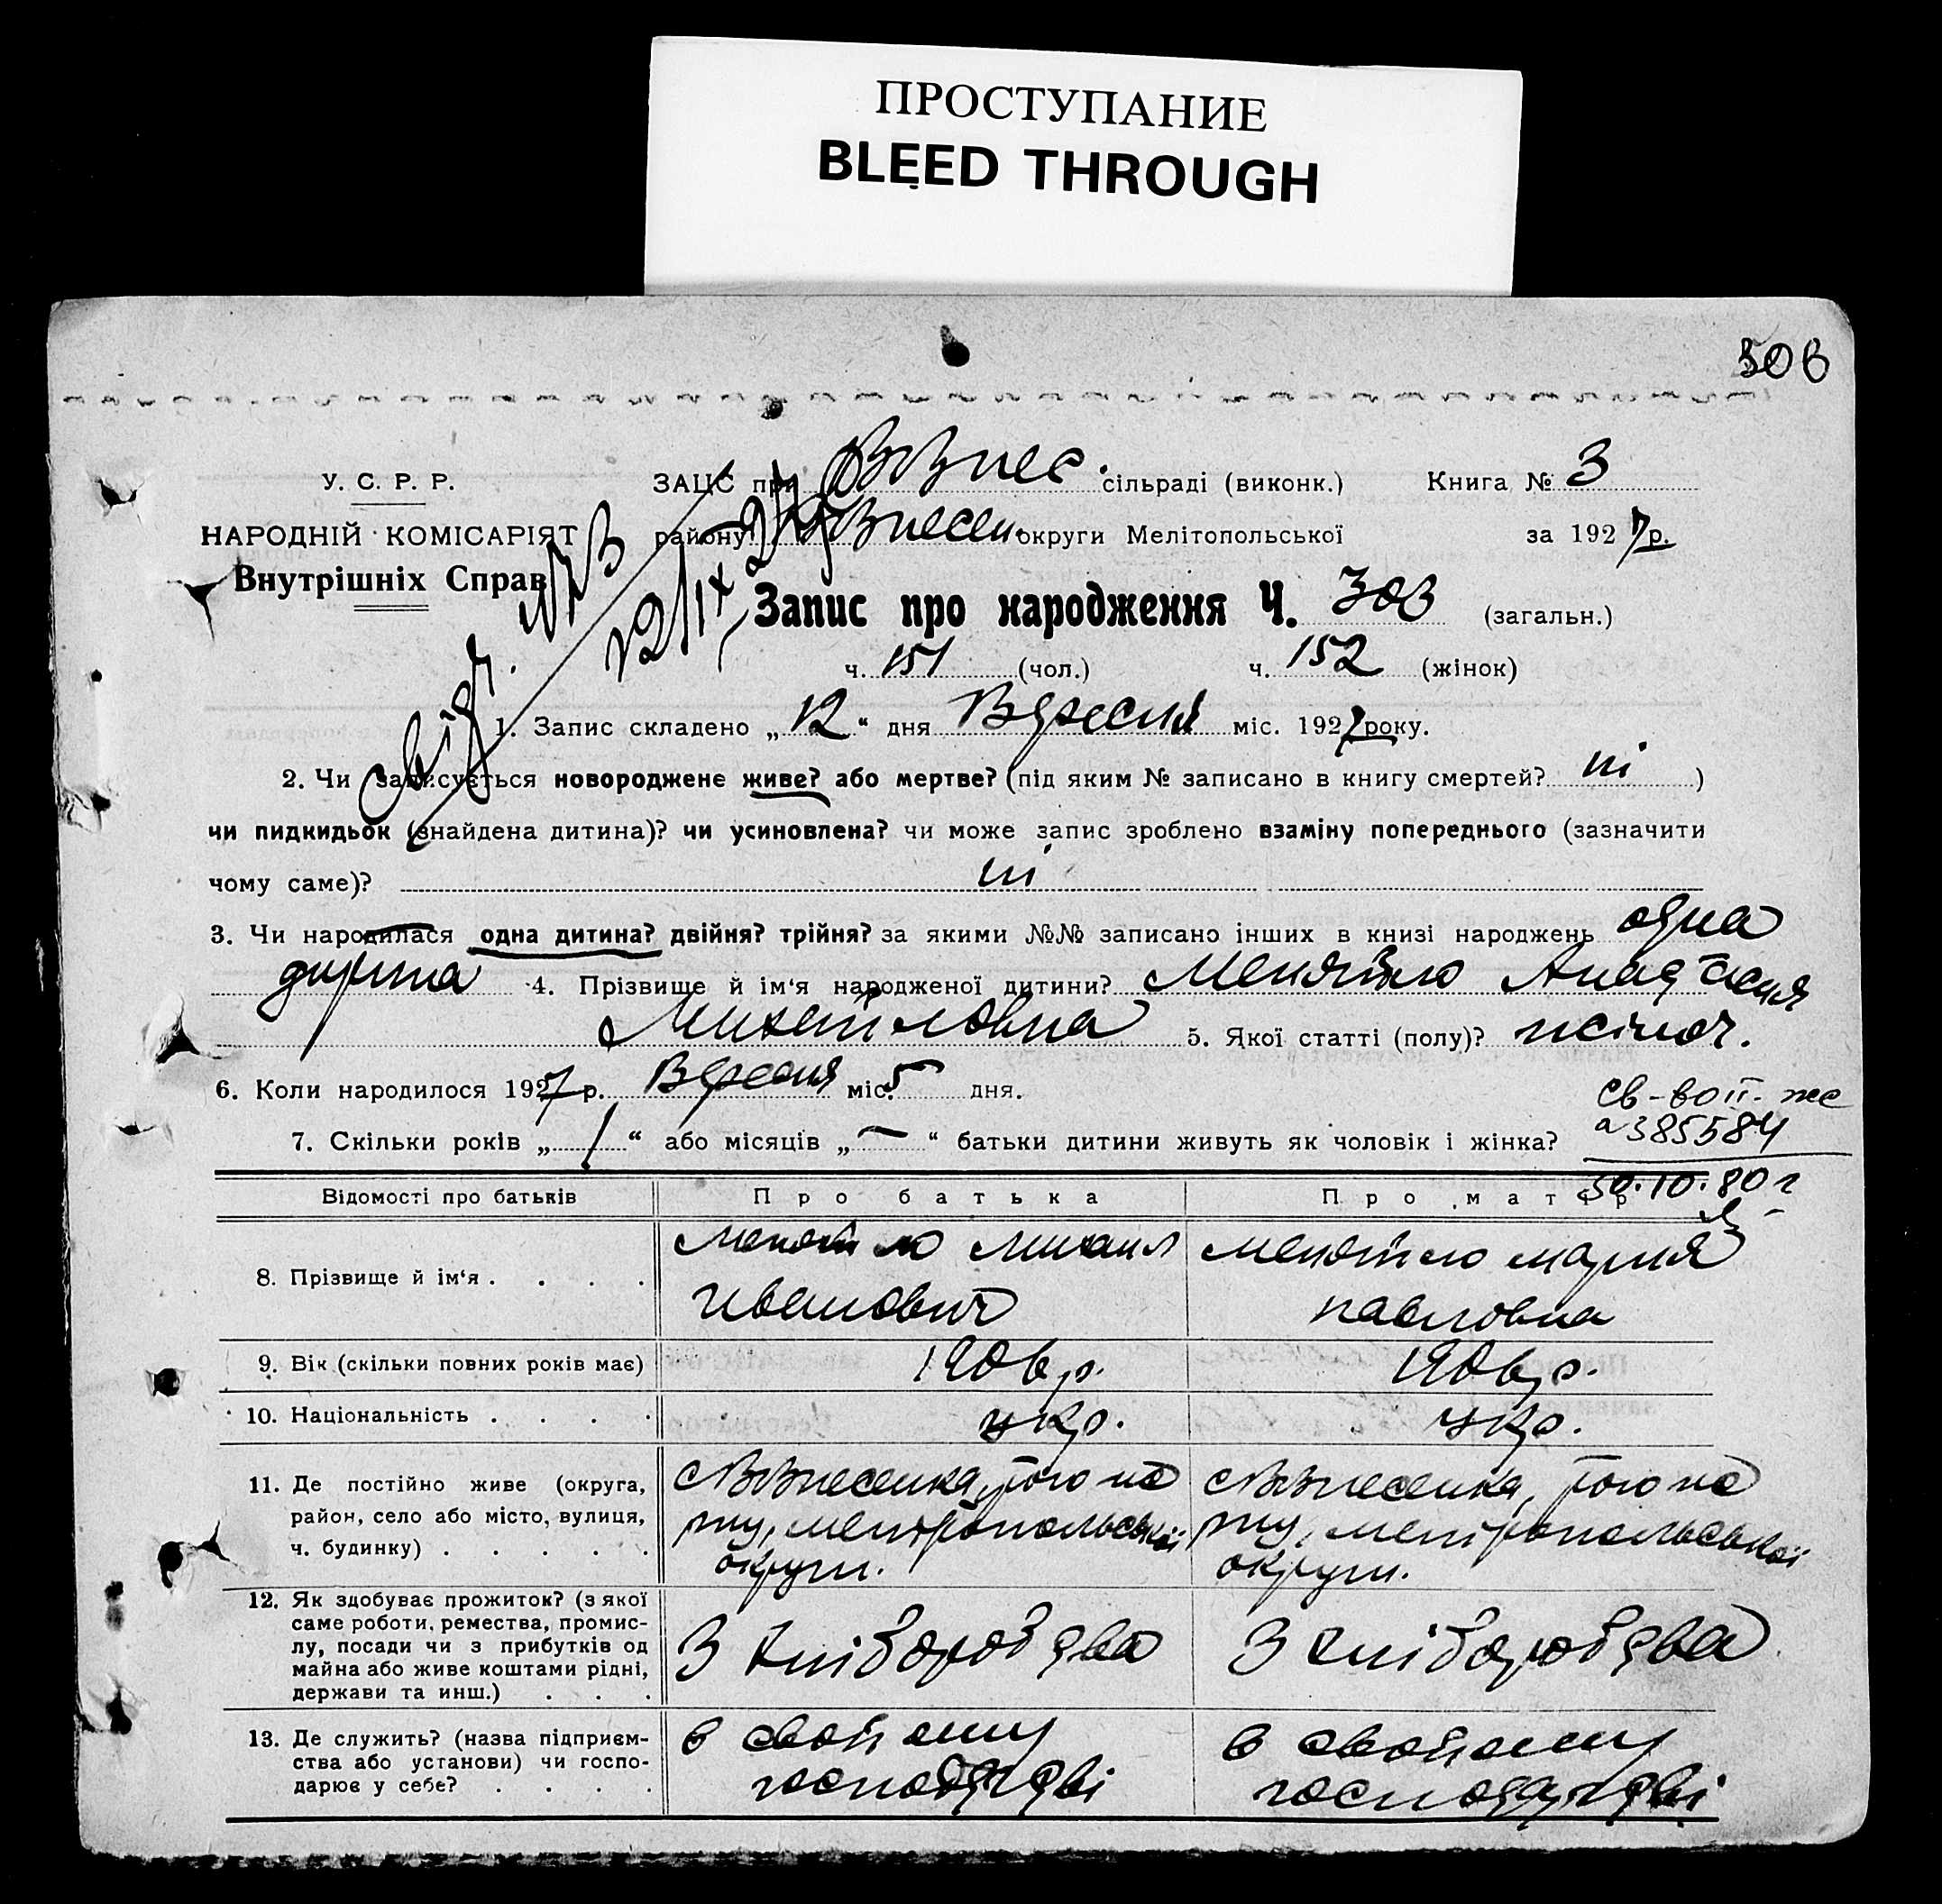 ПРОСТУПАНИЕ
BLEED THROUGH
У. С. Р. Р.
НАРОДНІЙ КОМІСАРІЯТ
Внутрішніх Справ
ЗАЦС при Вознес. сільраді (виконк.) Книга № 3
району Вознесен. округи Мелітопольської за 1927 р.
Запис про народження Ч. 303 (загальн.)
ч. 151 (чол.) ч. 152 (жінок)
1. Запис складено „12“ дня Вересня міс. 1927 року.
2. Чи записується новороджене живе? або мертве? (під яким № записано в книгу смертей? ні )
чи пидкидьок (знайдена дитина)? чи усиновлена? чи може запис зроблено взаміну попереднього (зазначити
чому саме)? ні
3. Чи народилася одна дитина? двійня? трійня? за якими №№ записано інших в книзі народжень одна
дитина 4. Прізвище й ім‘я народженої дитини? Меняйло
Михайловна 5. Якої статті (полу)? жіноч.
6. Коли народилося 1927 р. Вересня міс. 5 дня.
7. Скільки років „1“ або місяців „—“ батьки дитини живуть як чоловік і жінка?
св-во ІІ- же
385584
30.10.80 г
Відомості про батьків
Про батька
Про матір
8. Прізвище й ім‘я . . . .
Меняйло Михаил
Иванович
Меняйло Мария
Павловна
9. Вік (скільки повних років має)
1906 р.
1906 р.
10. Національність . . . .
укр.
укр.
11. Де постійно живе (округа,
район, село або місто, вулиця,
ч. будинку) . . . . .
с Вознесенка, того на
округи.
с Вознесенка, того на
округи.
12. Як здобуває прожиток? (з якої
саме роботи, ремества, промис-
лу, посади чи з прибутків од
майна або живе коштами рідні,
держави та инш.) . . .
З хліборобства
З хліборобства
13. Де служить? (назва підприєм-
ства або установи) чи госпо-
дарює у себе? . . . .
в свойому
господарстві
в свойому
господарстві